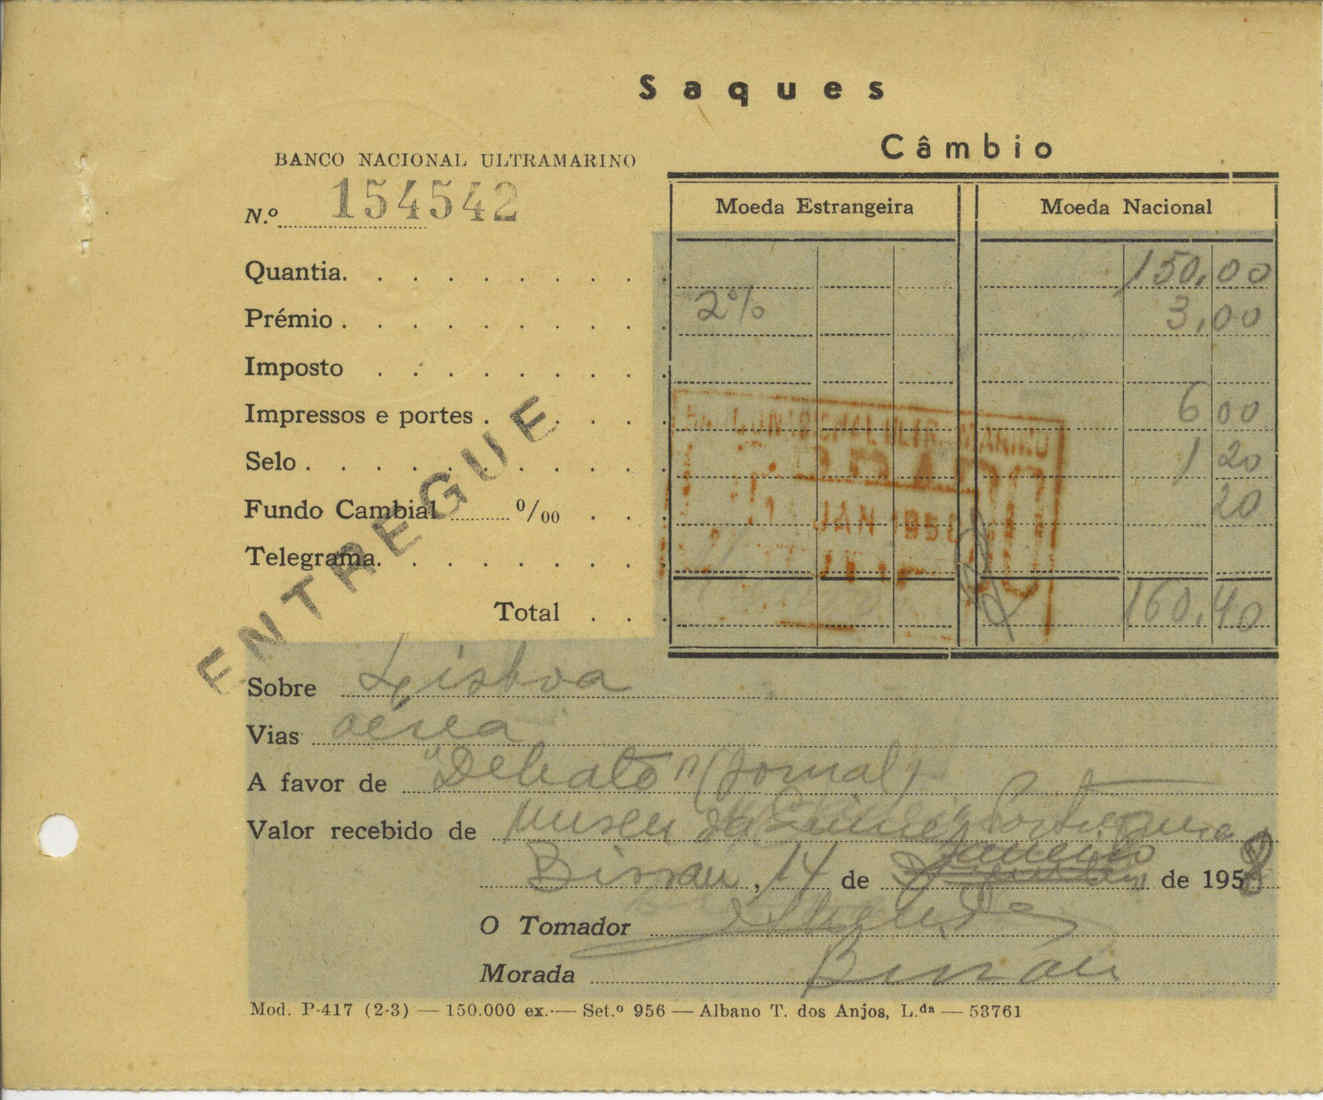 Saques
Câmbio
BANCO NACIONAL ULTRAMARINO
N.º 154542
Moeda Estrangeira Moeda Nacional
Quantia. 150,00
Prémio. 2% 3,00
Imposto
Impressos e portes. 6 00
Selo. 1 20
Fundo Cambial ........ º/₀₀ 20
Telegrama.
Total 160,40
ENTREGUE
JAN 1958
Sobre Lisboa
Vias aérea
A favor de "Debato" (Jornal)
Valor recebido de Museu da Guiné Portuguesa
Bissau, 14 de Janeiro de 1958
O Tomador
Morada Bissau
Mod. P-417 (2-3) — 150.000 ex. — Set.º 956 — Albano T. dos Anjos, L.da — 53761